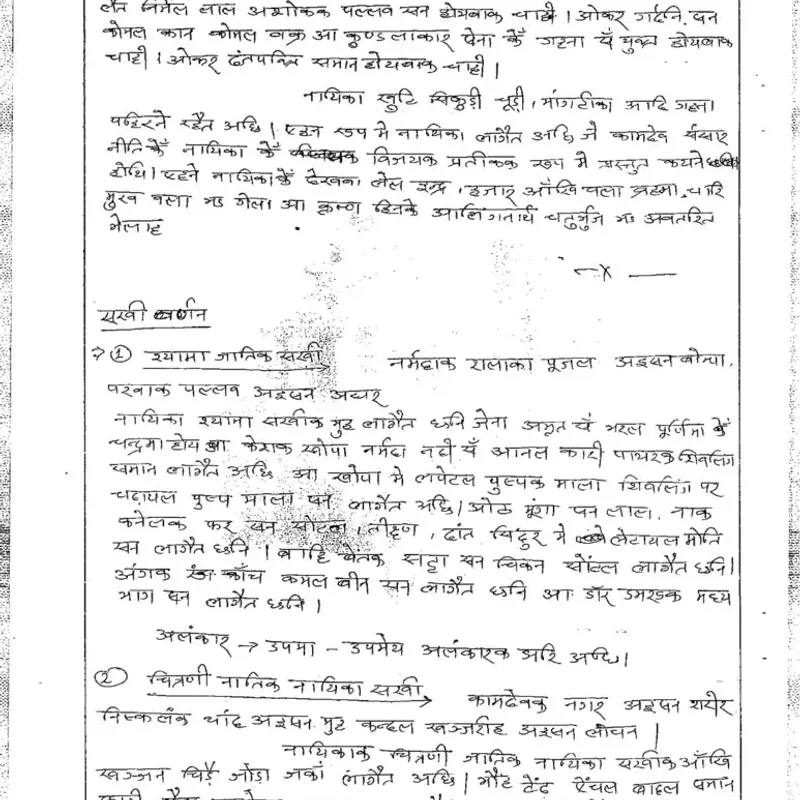 निर्मल लाल अशोकक पल्लव सन होयबाक चाही । ओकर गर्दनि, धन
कोमल कान कोमल वक्र आ कुण्डलाकार पेना के गहना सँ युक्त होयबाक
चाही । ओकर दंतपंक्ति समान होयबाक चाही ।
नायिका खुटि सिकड़ी चूड़ी, मांगटीका आदि गहना
पहिरने रहैत अछि । एहन रूप मे नायिका लागैत अछि जे कामदेव संसार
नीति के नायिका के विजयक प्रतीकक रूप मे प्रस्तुत कयने
होथि । एहने नायिका के देखबा लेल इन्द्र, हजार आँखि वला ब्रह्मा, चारि
मुख वला भऽ गेला आ कृष्ण हिनके आलिंगनार्थ चतुर्भुज भऽ अवतरित
भेलाह
— x —
सखी वर्णन
→ ① श्यामा जातिक सखी नर्मदाक शलाका पूजल अइसन खोपा,
परवाक पल्लव अइसन अधर
नायिका श्यामा सखीक मुह लागैत छनि जेना अमृत सँ भरल पूर्णिमा के
चन्द्रमा होय आ केशक खोपा नर्मदा नदी सँ आनल कारी पाथरक शिवलिंग
समान लागैत अछि आ खोपा मे लपेटल पुष्पक माला शिवलिंग पर
चढ़ायल पुष्प माला सन लागैत अछि । ओठ मूंगा सन लाल, नाक
कनेलक फर सन सोटल, तीक्ष्ण, दांत सिंदुर मे लेटायल मोति
सन लागैत छनि । बाहि बेंतक सट्टा सन चिकन सोंटल लागैत छनि ।
अंगक रंग काँच कमल बीन सन लागैत छनि आ डाँर डमरूक मध्य
भाग सन लागैत छनि ।
अलंकार → उपमा - उपमेय अलंकारक झरि अछि ।
② चित्रणी जातिक नायिका सखी कामदेवक नगर अइसन शरीर
निष्कलंक चाँद अइसन मुह कन्दल खञ्जरीट अइसन लोचन ।
नायिकाक चित्रणी जातिक नायिका सखीक आँखि
खञ्जन चिड़ै जोड़ा जकाँ लागैत अछि । भौंह टेढ़ ऐंचल बादल समान